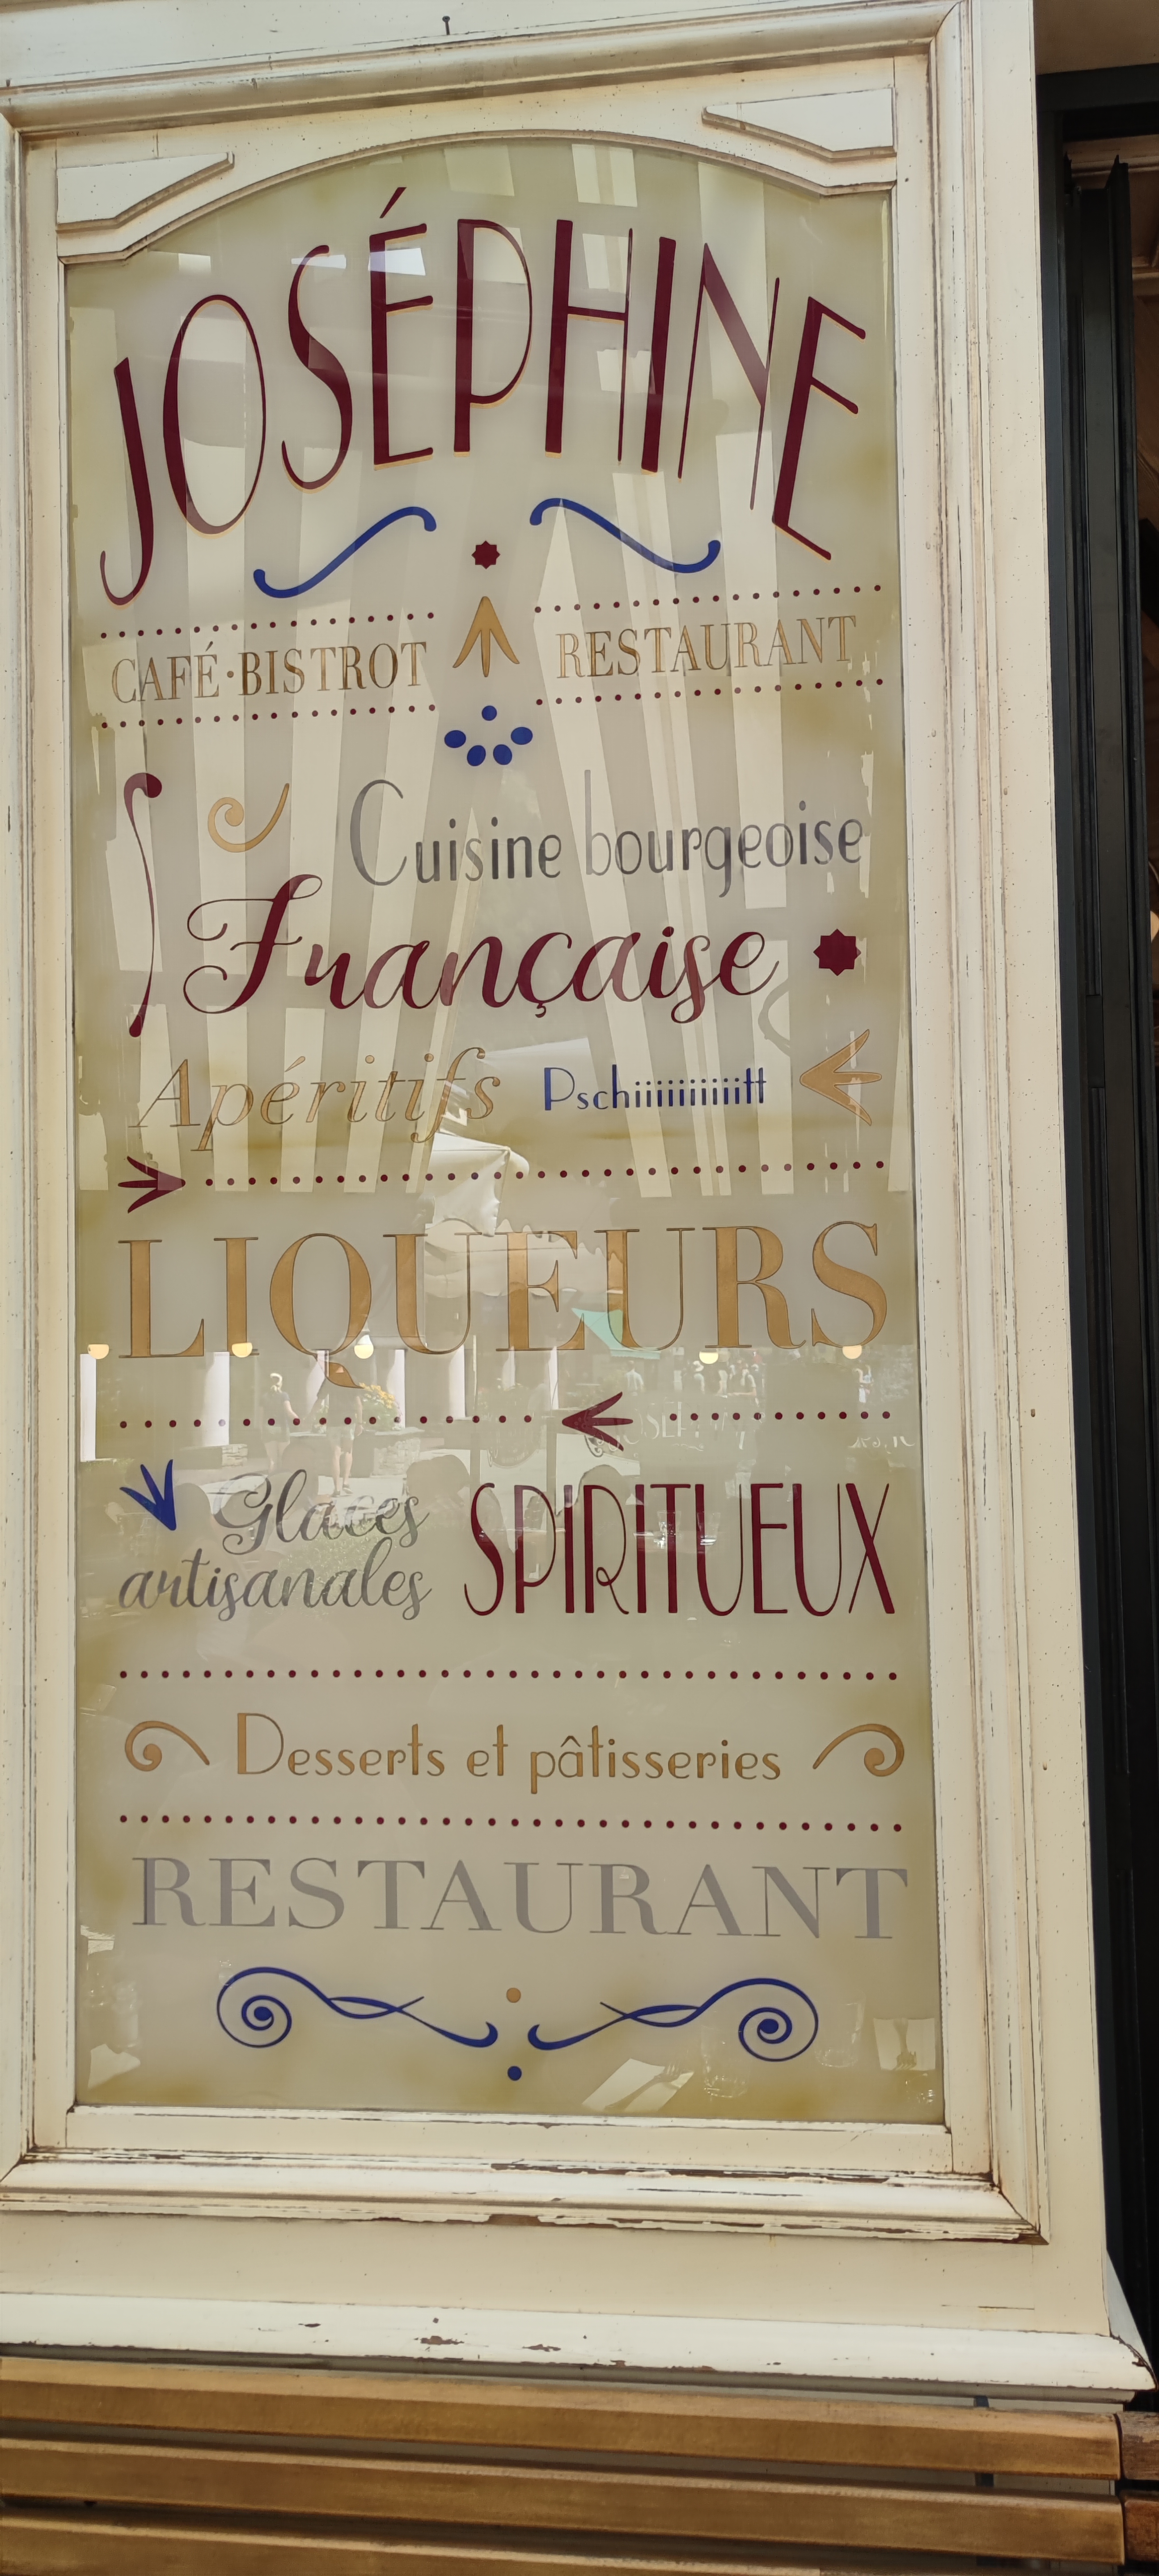 JOSÉPHINE
CAFÉ·BISTROT RESTAURANT
Cuisine bourgeoise
Française
Apéritifs Pschiiiiiiiiiitt
LIQUEURS
Glaces artisanales SPIRITUEUX
Desserts et pâtisseries
RESTAURANT